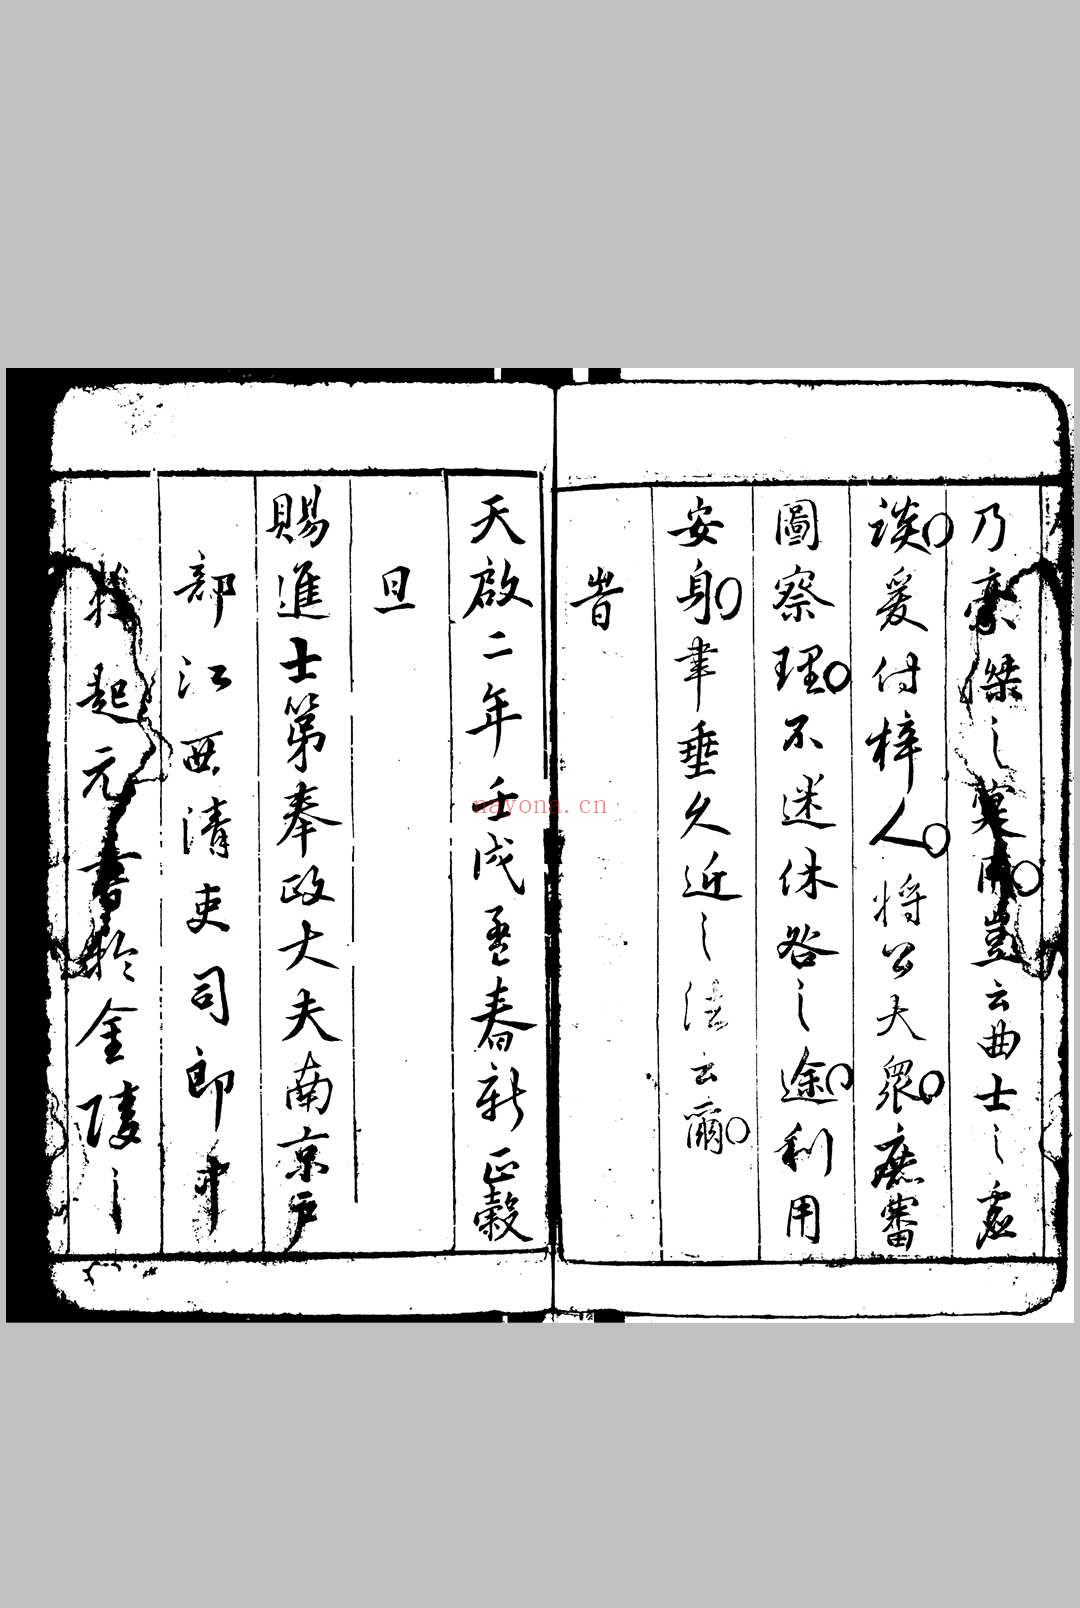 乃豪傑之奠甫豈云曲士之處
談爰付梓人將公大眾庶審
圖察理不迷休咎之途利用
安身聿垂久近之法云爾
旹
天啟二年壬戌孟春新正穀
旦
賜進士第奉政大夫南京戶
部江西清吏司郎中
起元書於金陵之
nayona.cn